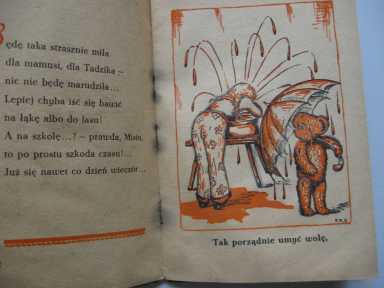 Będę taka strasznie miła
dla mamusi, dla Tadzika –
nic nie będę marudziła...
Lepiej chyba iść się bawić
na łąkę albo do lasu!
A na szkołę...? – prawda, Misiu,
to po prostu szkoda czasu!...
Już się nawet co dzień wieczór...
Tak porządnie umyć wolę,